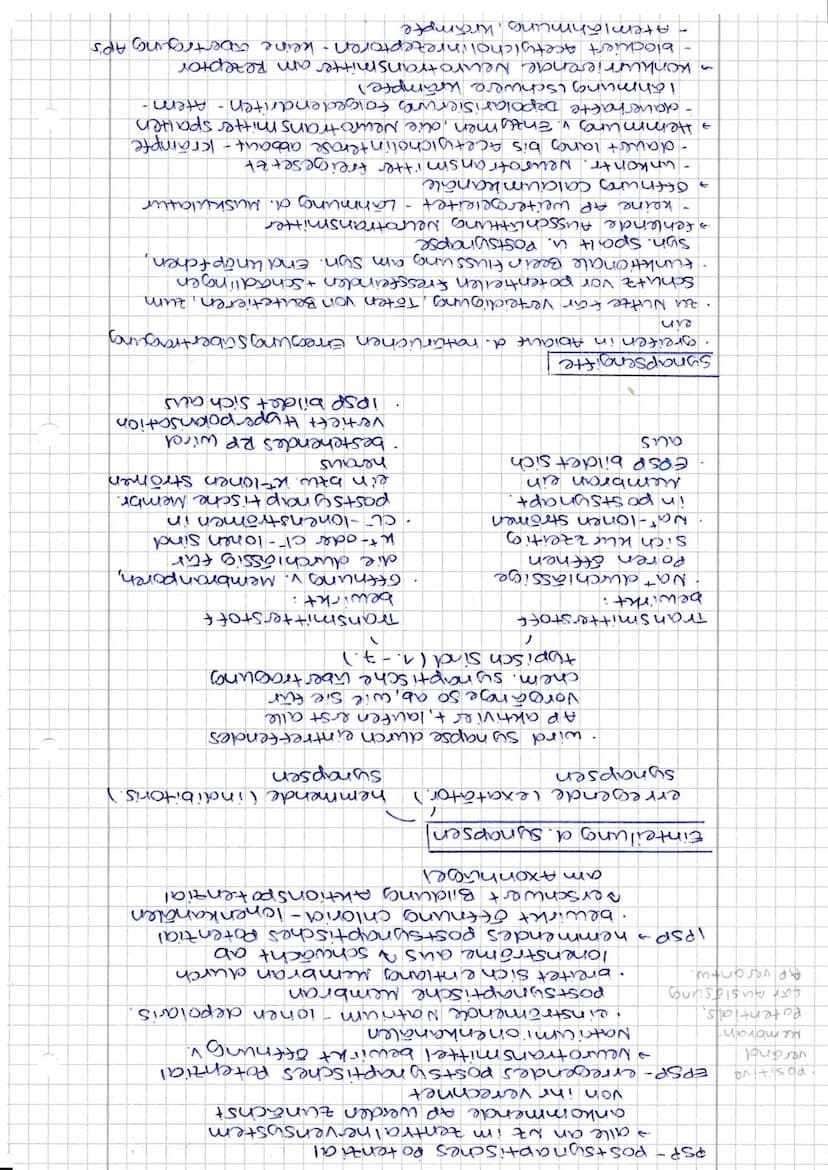 PSP - postsynaptisches Potenzial
→ alle an NZ im Zentralnervensystem
ankommende AP werden zunächst
von ihr verrechnet
EPSP - erregendes postsynaptisches Potenzial
→ Neurotransmittel bewirkt Öffnung v.
Natriumionenkanälen
· einströmende Natrium-Ionen depolaris.
postsynaptische Membran
· breitet sich entlang Membran durch
Ionenströme aus & schwächt ab
· positive
veränd.
Membran-
potentials,
für Auslösung
AP verantw.
IPSP → hemmendes postsynaptisches Potenzial
· bewirkt Öffnung Chlorid-Ionenkanälen
erschwert Bildung Aktionspotenzial
am Axonhügel
Einteilung d. Synapsen
erregende (exatator.) hemmende (inhibitoris.)
Synapsen Synapsen
· wird Synapse durch eintreffendes
AP aktiviert, laufen erst alle
Vorgänge so ab, wie sie für
chem. synaptische Übertragung
typisch sind (1. - 7.)
Transmitterstoff
bewirkt:
· Na⁺ durchlässige
Poren öffnen
sich kurzzeitig
· Na⁺-Ionen strömen
in postsynapt.
Membran ein
· EPSP bildet sich
aus
Transmitterstoff
bewirkt:
· Öffnung v. Membranporen,
die durchlässig für
K⁺- oder Cl⁻-Ionen sind
· Cl⁻-Ionen strömen in
postsynaptische Membr.
ein bzw. K⁺-Ionen strömen
heraus
· bestehendes RP wird
vertieft Hyperpolarisation
· IPSP bildet sich aus
Synapsengifte
· greifen in Ablauf d. natürlichen Erregungsübertragung
ein
· zu Nutze für Verteidigung, Töten von Beutetieren, zum
Schutz vor potentiellen Fressfeinden + Schädlingen
· funktionale Beeinflussung am syn. Endknöpfchen,
syn. Spalt u. Postsynapse
→ fehlende Ausschüttung Neurotransmitter
- keine AP weitergeleitet - Lähmung d. Muskulatur
→ Öffnung Calciumkanäle
- unkontr. Neurotransmitter freigesetzt
- dauert lang bis Acetylcholinterase abbaut - Krämpfe
→ Hemmung v. Enzymen, die Neurotransmitter spalten
- dauerhafte Depolarisierung Folgedendriten - Atem-
lähmung (schwere Krämpfe)
→ konkurrierende Neurotransmitter am Rezeptor
- blockiert Acetylcholinrezeptoren - keine Übertragung APs
- Atemlähmung, Krämpfe